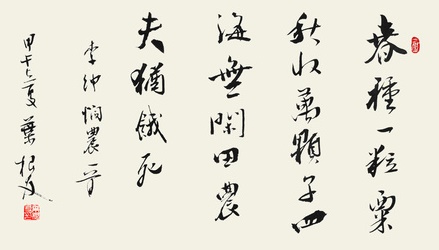 春種一粒粟
秋收萬顆子四
海無閑田農
夫猶餓死
李紳憫農一首
甲午之夏葉根友